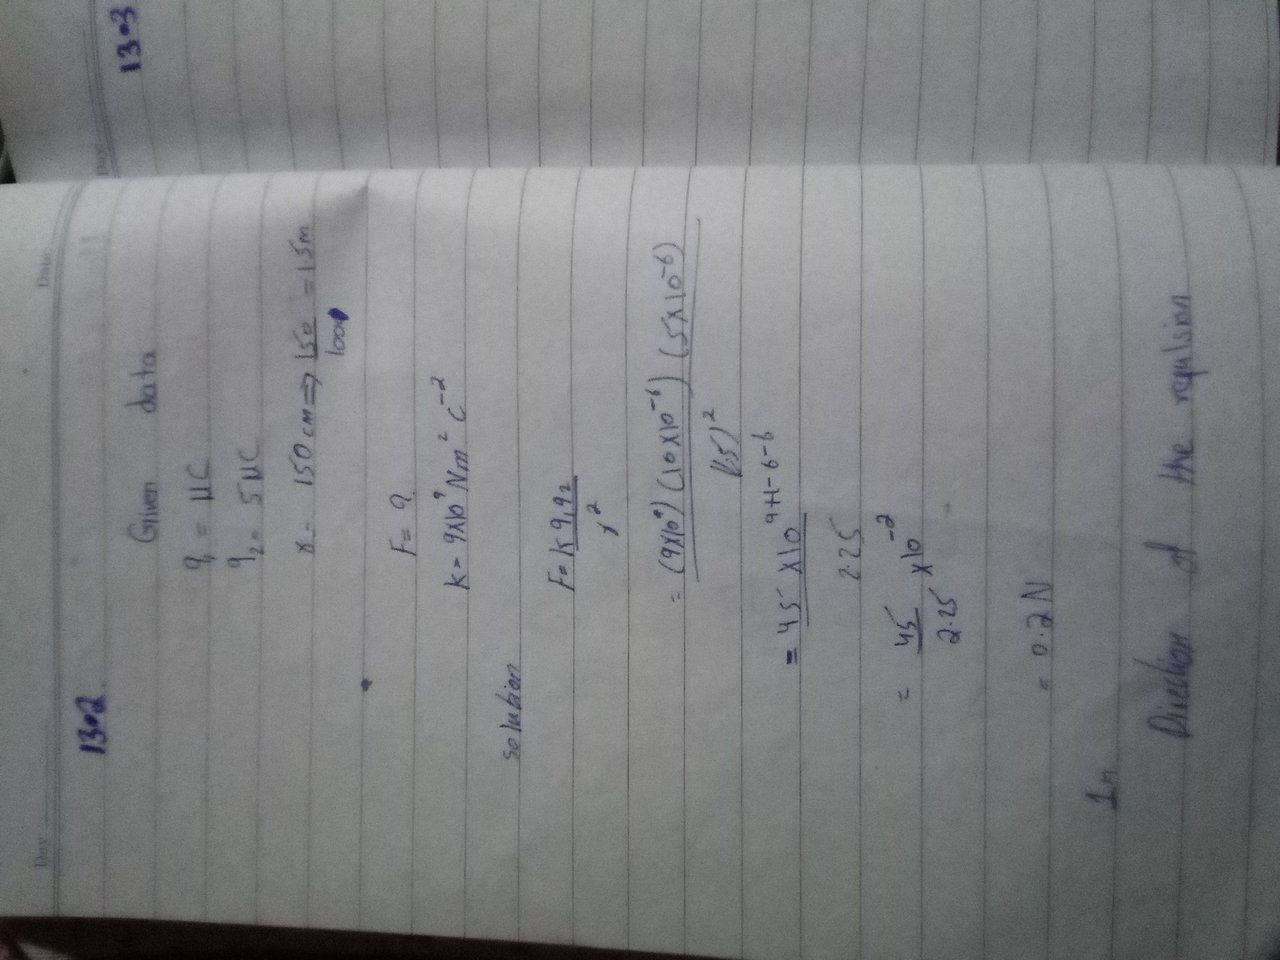 Day
Date
13.2
Given data
q₁ = μC
q₂ = 5 μC
r = 150 cm ⇒ 150/100 = 1.5m
F = ?
K = 9x10⁹ Nm² C⁻²
solution
F = K q₁ q₂ / r²
= (9x10⁹) (10x10⁻⁶) (5x10⁻⁶) / (1.5)²
= 45 x10⁹⁺¹⁻⁶⁻⁶ / 2.25
= 45/2.25 x10⁻²
= 0.2 N
In
Direction of the repulsion
Day
13.3